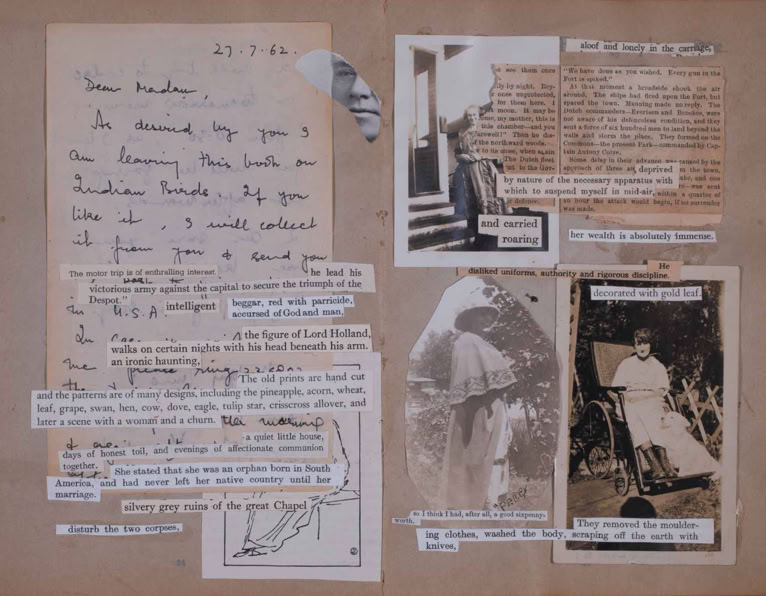 27.7.62.
Dear Madam,
As desired by you I
am leaving this book on
Indian Birds. If you
like it, I will collect
it from you & send you
The motor trip is of enthralling interest.
he lead his
victorious army against the capital to secure the triumph of the
Despot."
in U.S.A
intelligent
beggar, red with parricide,
accursed of God and man,
the figure of Lord Holland,
walks on certain nights with his head beneath his arm.
an ironic haunting,
me please ring
The old prints are hand cut
and the patterns are of many designs, including the pineapple, acorn, wheat,
leaf, grape, swan, hen, cow, dove, eagle, tulip star, crisscross allover, and
later a scene with a woman and a churn.
the morning
a quiet little house,
days of honest toil, and evenings of affectionate communion
together.
She stated that she was an orphan born in South
America, and had never left her native country until her
marriage.
silvery grey ruins of the great Chapel
disturb the two corpses,
aloof and lonely in the carriage,
see them once
ly by night. Bey-
once unprotected,
for them here. I
moon. It may be
me, my mother, this is
this chamber—and you
farewell!" Thus he dis-
the northward woods.
to its close, when again
The Dutch fleet
to the Gov-
defence.
"We have done as you wished. Every gun in the
Fort is spoked."
At this moment a broadside shook the air
around. The ships had fired upon the Fort, but
spared the town. Manning made no reply. The
Dutch commanders—Evertsen and Benckes, were
not aware of his defenceless condition, and they
sent a force of six hundred men to land beyond the
walls and storm the place. They formed on the
Commons—the present Park—commanded by Cap-
tain Antony Colve.
Some delay in their advance was caused by the
approach of three
the town,
was sent
within a quarter of
an hour the attack would begin, if no surrender
was made.
deprived
by nature of the necessary apparatus with
which to suspend myself in mid-air,
and carried
roaring
her wealth is absolutely immense.
He
disliked uniforms, authority and rigorous discipline.
decorated with gold leaf.
so I think I had, after all, a good sixpenny-
worth.
They removed the moulder-
ing clothes, washed the body, scraping off the earth with
knives,